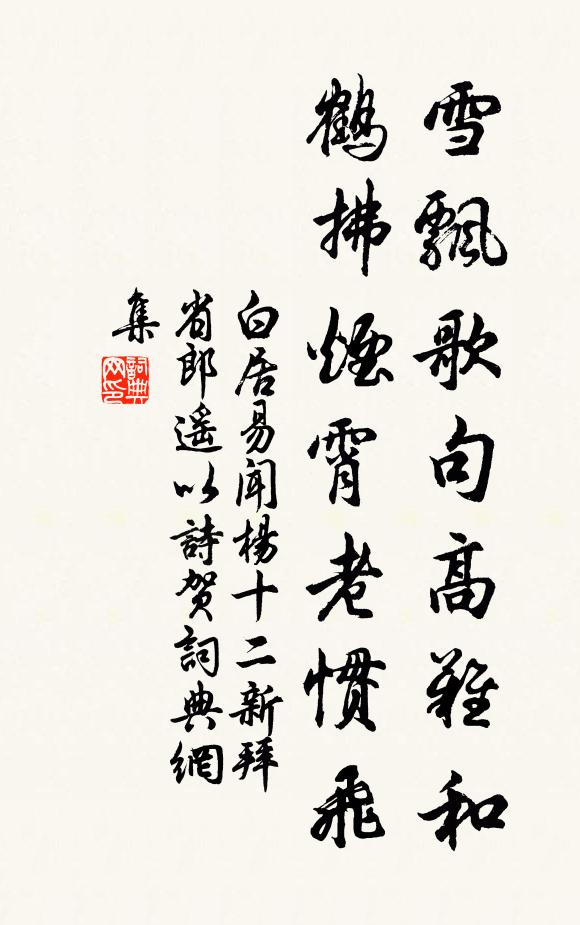 雪飄歌句高難和
鶴拂煙霄老慣飛
白居易聞楊十二新拜
省郎遙以詩賀詞典網
集
詞典網印